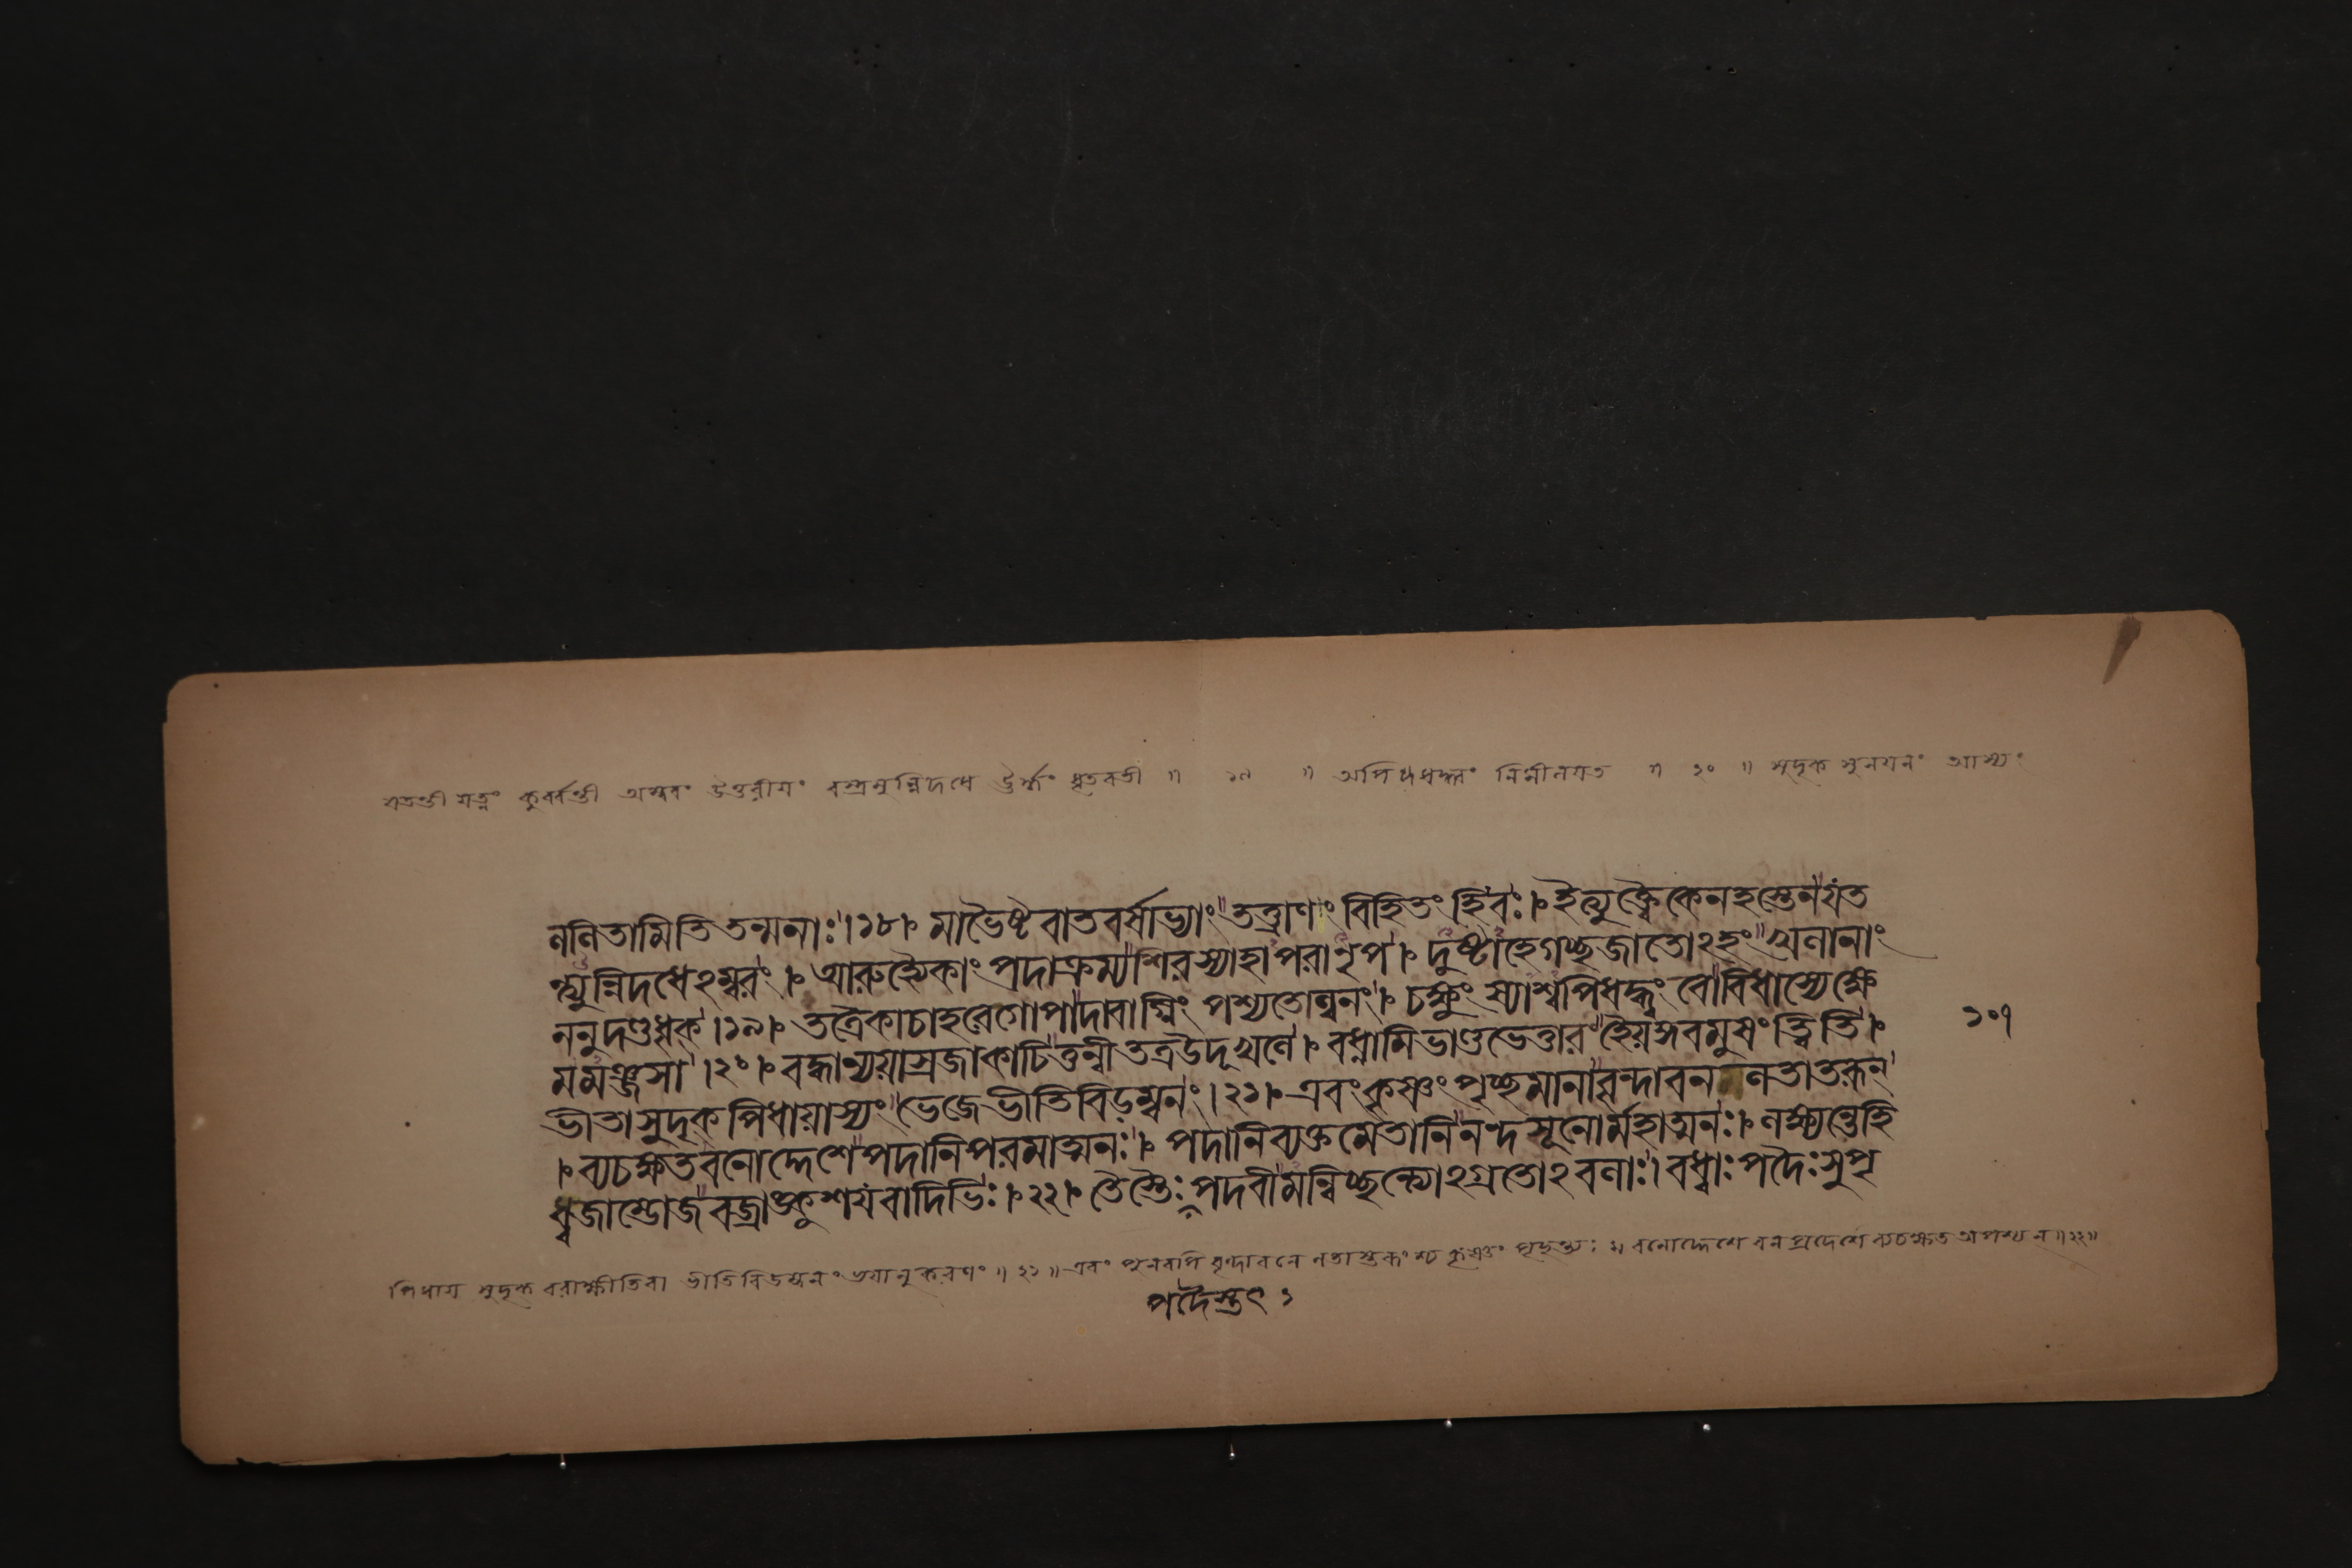 যতন্তী যত্নং কুর্ব্বন্তী অম্বরং উত্তরীয়ং বস্ত্রমুন্নিদধে ঊর্দ্ধং ধৃতবতী ॥ ১৯ ॥ অপিধদ্ধ্বং নিমীলয়ত ॥ ২০ ॥ সুদৃক সুনয়নং আস্যং
ললিতামিতি তন্মনাঃ।১৮। মাভৈষ্টবাতবর্ষাভ্যাং তত্ত্রাণং বিহিতং হিবঃ। ইত্যুক্ত্বৈকেনহস্তেনযত
ন্ত্যুন্নিদধেঽম্বরং। আরুহ্যৈকাং পদাক্রম্যশিরস্যাহাপরানৃপ। দুষ্টাহেগচ্ছজাতোঽহং খলানাং
ননুদণ্ডধৃক।১৯। তত্রৈকাচাহরেগোপাদাবাগ্নিং পশ্যতোল্বনং। চক্ষুংস্যাশ্বপিধদ্ধ্বং বোবিধাস্যেক্ষে
মমঞ্জসা।২০। বদ্ধান্যয়াস্রজাকাচিত্তন্বীতত্রউদূখলে। বধ্নামিভাণ্ডভেত্তারং হৈয়ঙ্গবমুষংত্ত্বিতি।
ভীতাসুদৃকপিধায়াস্যং ভেজেভীতিবিড়ম্বনং।২১। এবংকৃষ্ণংপৃচ্ছমানাবৃন্দাবন লতাতরূন
। ব্যচক্ষতবনোদ্দেশেপদানিপরমাত্মনঃ। পদানিব্যক্তমেতানিনন্দসূনোর্মহাত্মনঃ। লক্ষ্যন্তেহি
ধ্বজাম্ভোজবজ্রাঙ্কুশযবাদিভিঃ।২২। তৈস্তৈঃপদবীমন্বিচ্ছন্ত্যোঽগ্রতোঽবলাঃ। বধ্বাঃপদৈঃসুপৃ
১০৭
পিধায় সুদৃক বরাক্ষীতিবা ভীতিবিডম্বনং ভয়ানুকরণং ॥ ২১ ॥ এবং পুনরপি বৃন্দাবনে লতাস্তরূংশ্চ কৃষ্ণং পৃচ্ছন্ত্যঃ বনোদ্দেশে বনপ্রদেশে ব্যচক্ষত অপশ্যন ॥২২॥
পদৈস্তৎ ১